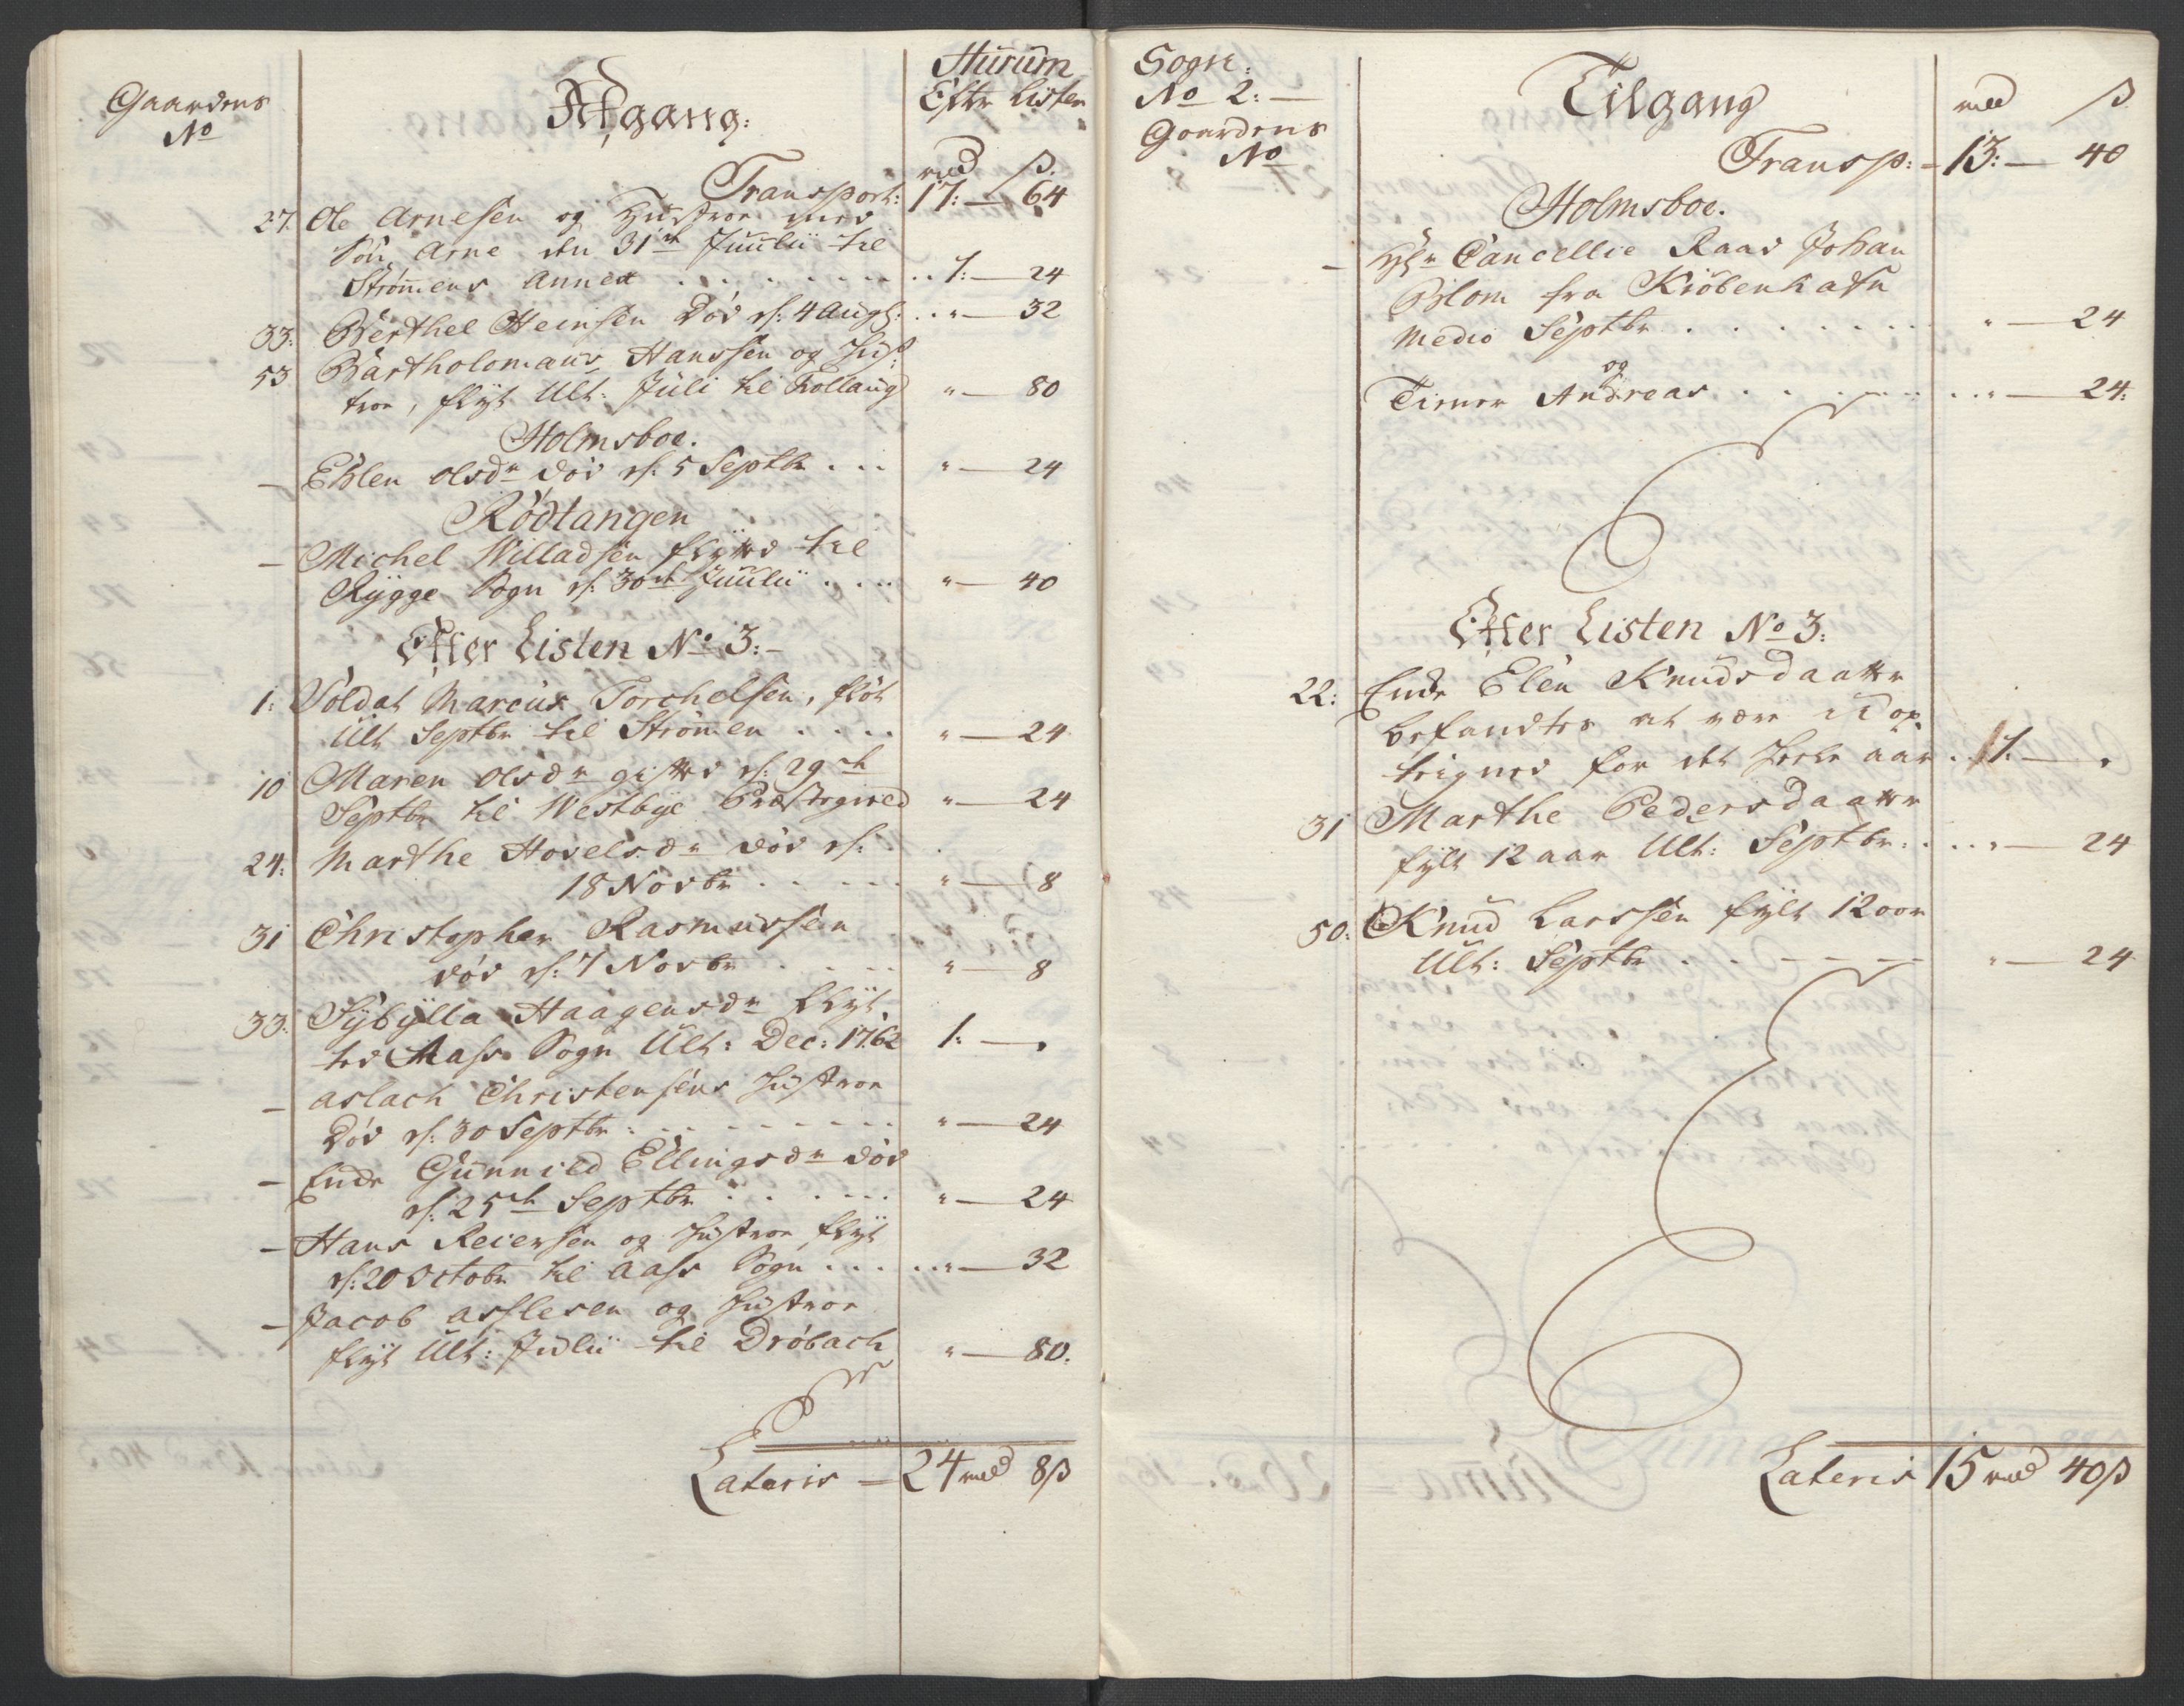 Gaardens
No
Afgang:
Hurum
Efter Listen
rd ß.
Transport: 17: — 64
27. Ole Arnesen og Hustroe med
Søn Arne den 31te Juulii til
Strømens Annex . . . 1: — 24
33: Berthel Heinsen Død d: 4 Augs: . . " — 32
53 Bartholomæus Hanssen og Hus:
troe, flyt Ult: Juli til Frollaug " — 80
Holmsboe.
— Ehlen Olsdr død d: 5 Septbr . . . " — 24
Rødtangen
— Michel Willadsen flytted til
Rygge Sogn d: 30te Juulii . . . " — 40
Efter Listen No 3: —
1: Soldat Marcus Torchelsen, fløt
Ult Septbr til Strømen . . . . " — 24
10 Maren Olsdr gifted d: 29de
Septbr til Westbye Præstegield " — 24
24: Marthe Hovelsdr død d:
18 Novbr . . . . " — 8
31 Christopher Rasmussen
død d: 7 Novbr . . . " — 8
33: Sybylla Haagensdr flyt
ted Aass Sogn Ult: Dec: 1762 1: — "
— Aslach Christensens Hustroe
Død d: 30 Septbr . . . " — 24
— Enke Gunnild Ellingsdr død
d: 25de Septbr . . . " — 24
— Hans Reiersen og Hustroe flyt
d: 20 Octobr til Aass Sogn . . . " — 32
— Jacob Asslesen og Hustroe
flyt Ult: Julii til Drøbach " — 80.
Lateris — 24 rd 8 ß
Sogn:
No 2: —
Gaardens
No
Tilgang
rd ß
Transp: — 13: — 40
Holmsboe.
— Hr Cancellie Raad Johan
Blom fra Kiøbenhafn
Medio Septbr . . . " — 24
og
Tiener Andreas . . . " — 24:
Efter Listen No 3:
22: Enke Elen Knudsdaatter
befandtes at være u-op
teigned for det heele aar . . 1: — "
31 Marthe Pedersdaatter
fylt 12 aar Ult: Septbr: . . . " — 24
50: Knud Larssen fylt 12 aar
Ult: Septbr . . . " — 24
Lateris 15 rd 40 ß